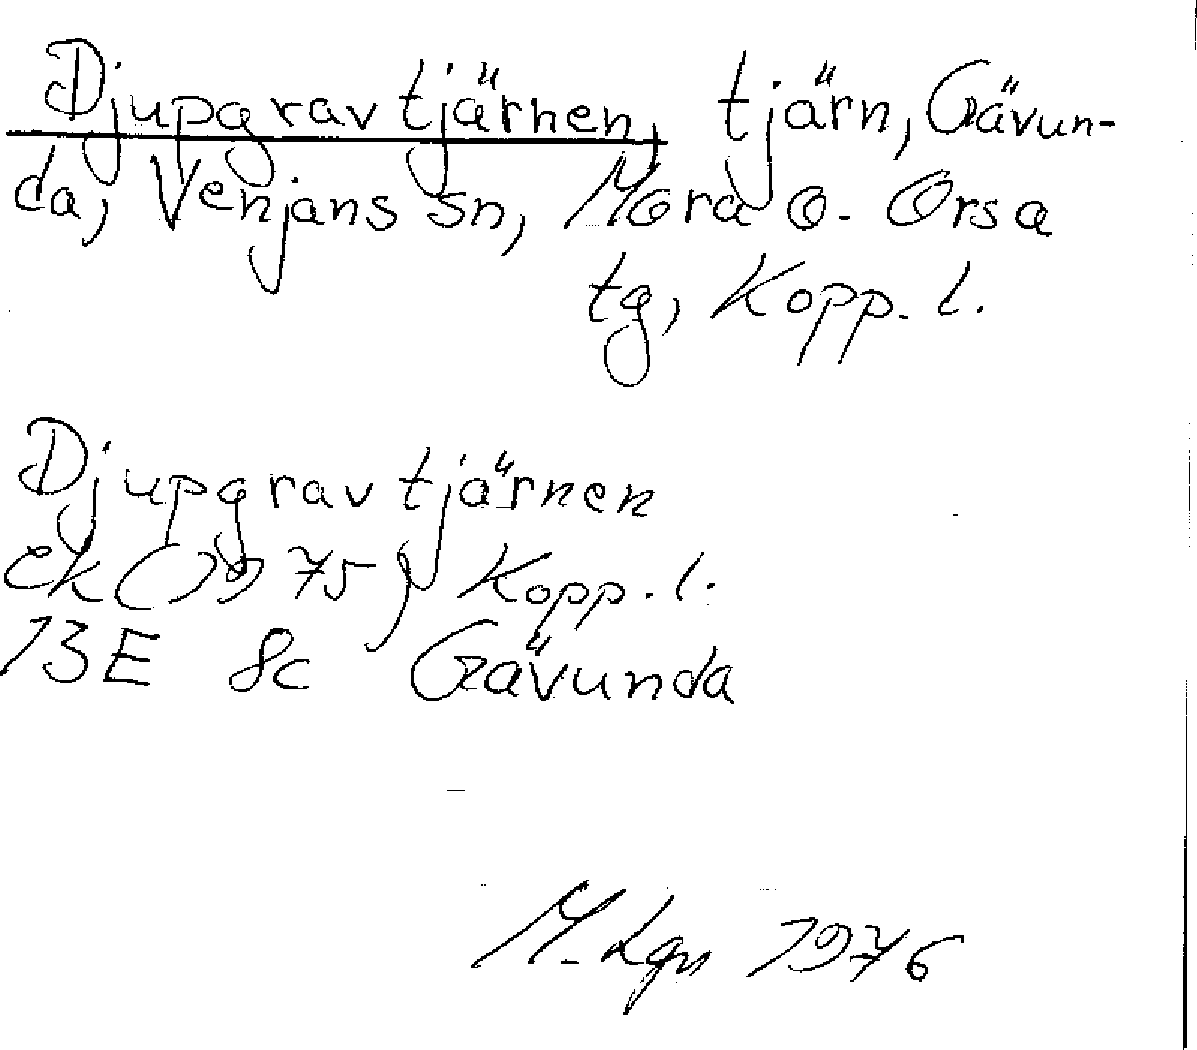 Djupgravtjärnen, tjärn, Gävun-
da, Venjans sn, Mora o. Orsa
tg, Kopp. l.
Djupgravtjärnen
ek (1975), Kopp. l.
13E 8c Gävunda
M. Lgn 1976